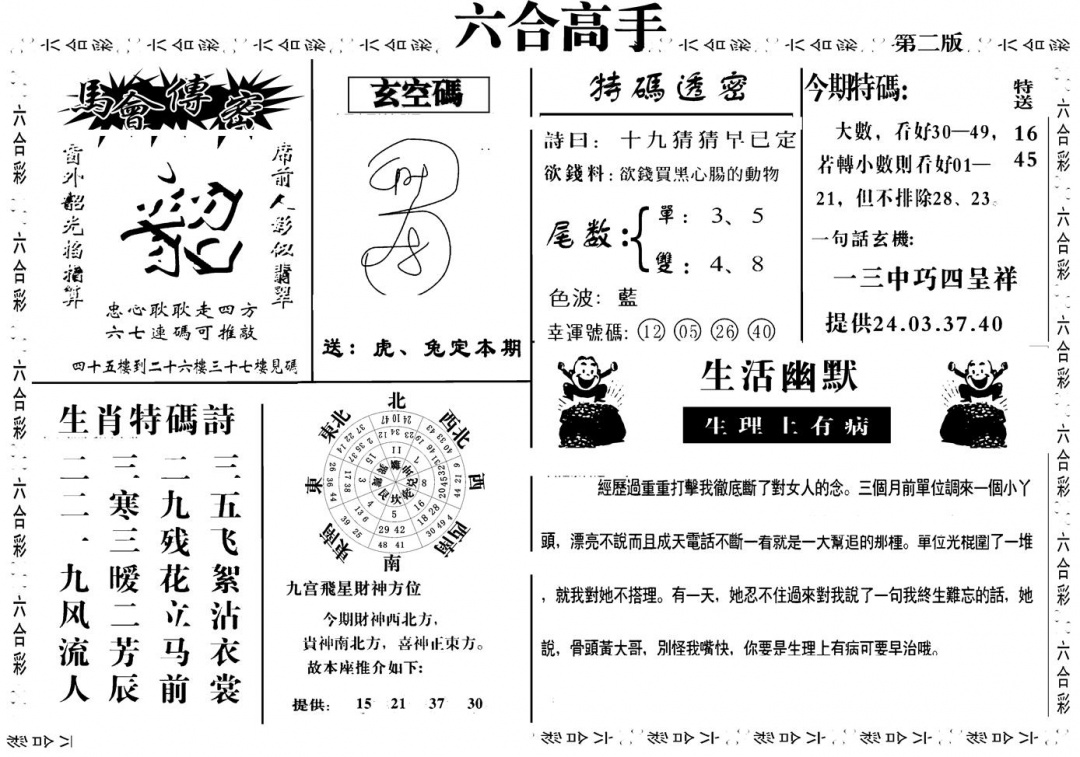 六合高手
第二版
馬會傳密
窗外韶光掐指算
席前人影似翡翠
忠心耿耿走四方
六七連碼可推敲
四十五樓到二十六樓三十七樓見碼
玄空碼
送：虎、兔定本期
特碼透密
詩曰：十九猜猜早已定
欲錢料：欲錢買黑心腸的動物
尾数：
單：3、5
雙：4、8
色波：藍
幸運號碼：12 05 26 40
今期特碼：
特送
16
45
大數，看好30—49，
若轉小數則看好01—
21，但不排除28、23。
一句話玄機：
一三中巧四呈祥
提供24.03.37.40
生肖特碼詩
三五飞絮沾衣裳
二九残花立马前
三寒三暖二芳辰
二二一九风流人
北
西北
西
西南
南
東南
東
東北
九宫飛星財神方位
今期財神西北方，
貴神南北方，喜神正東方。
故本座推介如下：
提供： 15 21 37 30
生活幽默
生理上有病
經歷過重重打擊我徹底斷了對女人的念。三個月前單位調來一個小丫
頭，漂亮不說而且成天電話不斷一看就是一大幫追的那種。單位光棍圍了一堆
，就我對她不搭理。有一天，她忍不住過來對我說了一句我終生難忘的話，她
說，骨頭黃大哥，別怪我嘴快，你要是生理上有病可要早治哦。
六合彩